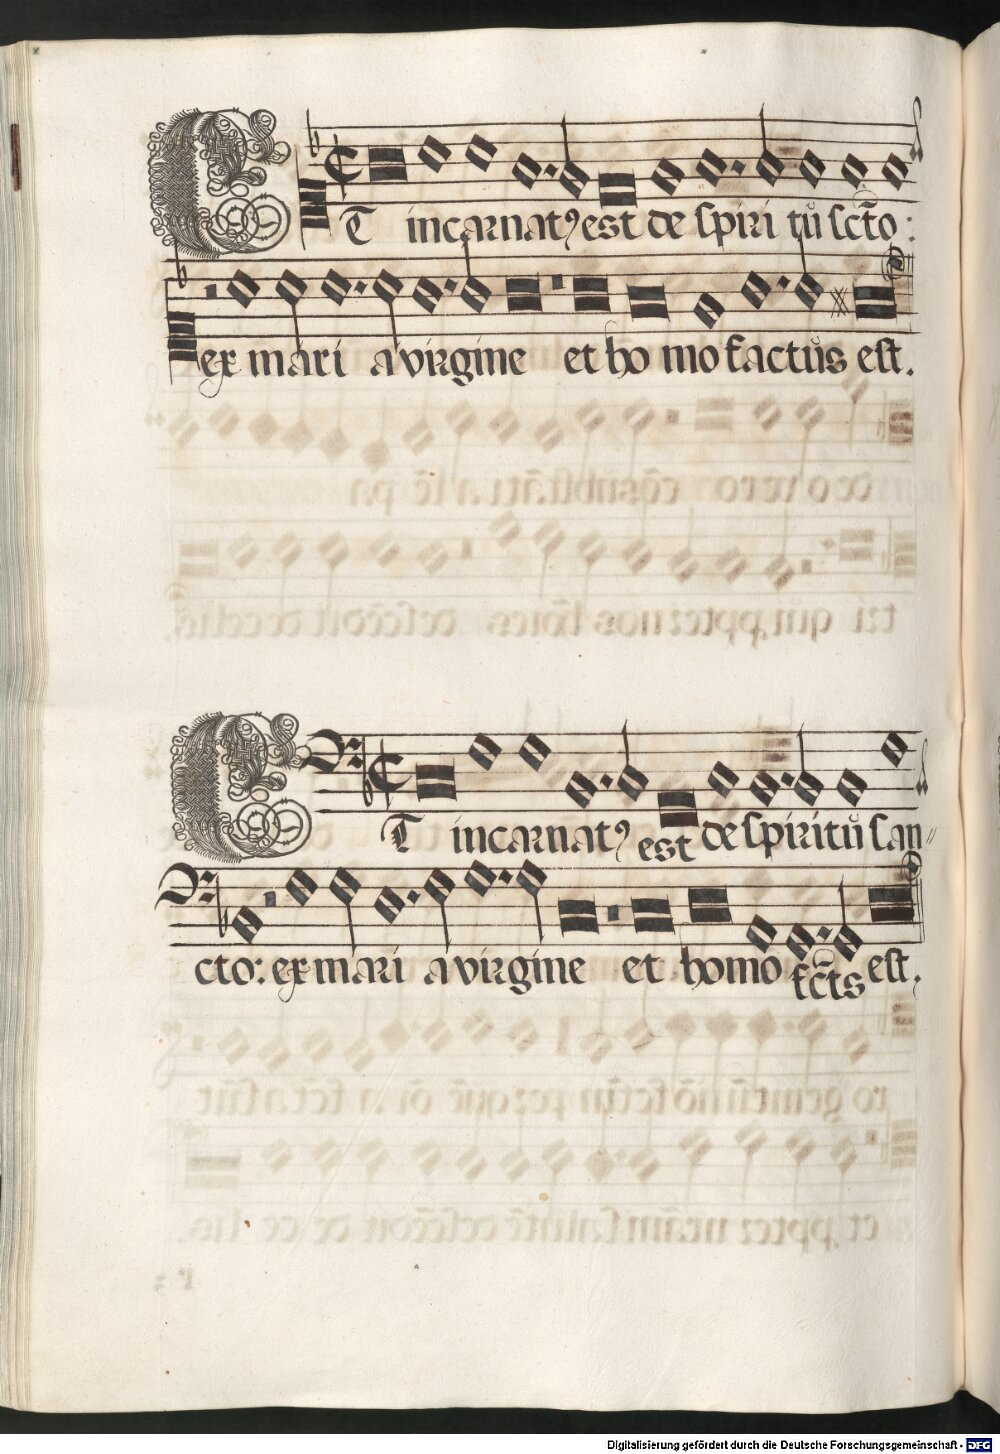 ET incarnatꝰ est de spiri tū sctō:
ex mari a virgine et ho mo factus est.
ET incarnatꝰ est de spiritū san„
cto: ex mari a virgine et homo fcts̄ est.
Digitalisierung gefördert durch die Deutsche Forschungsgemeinschaft - DFG